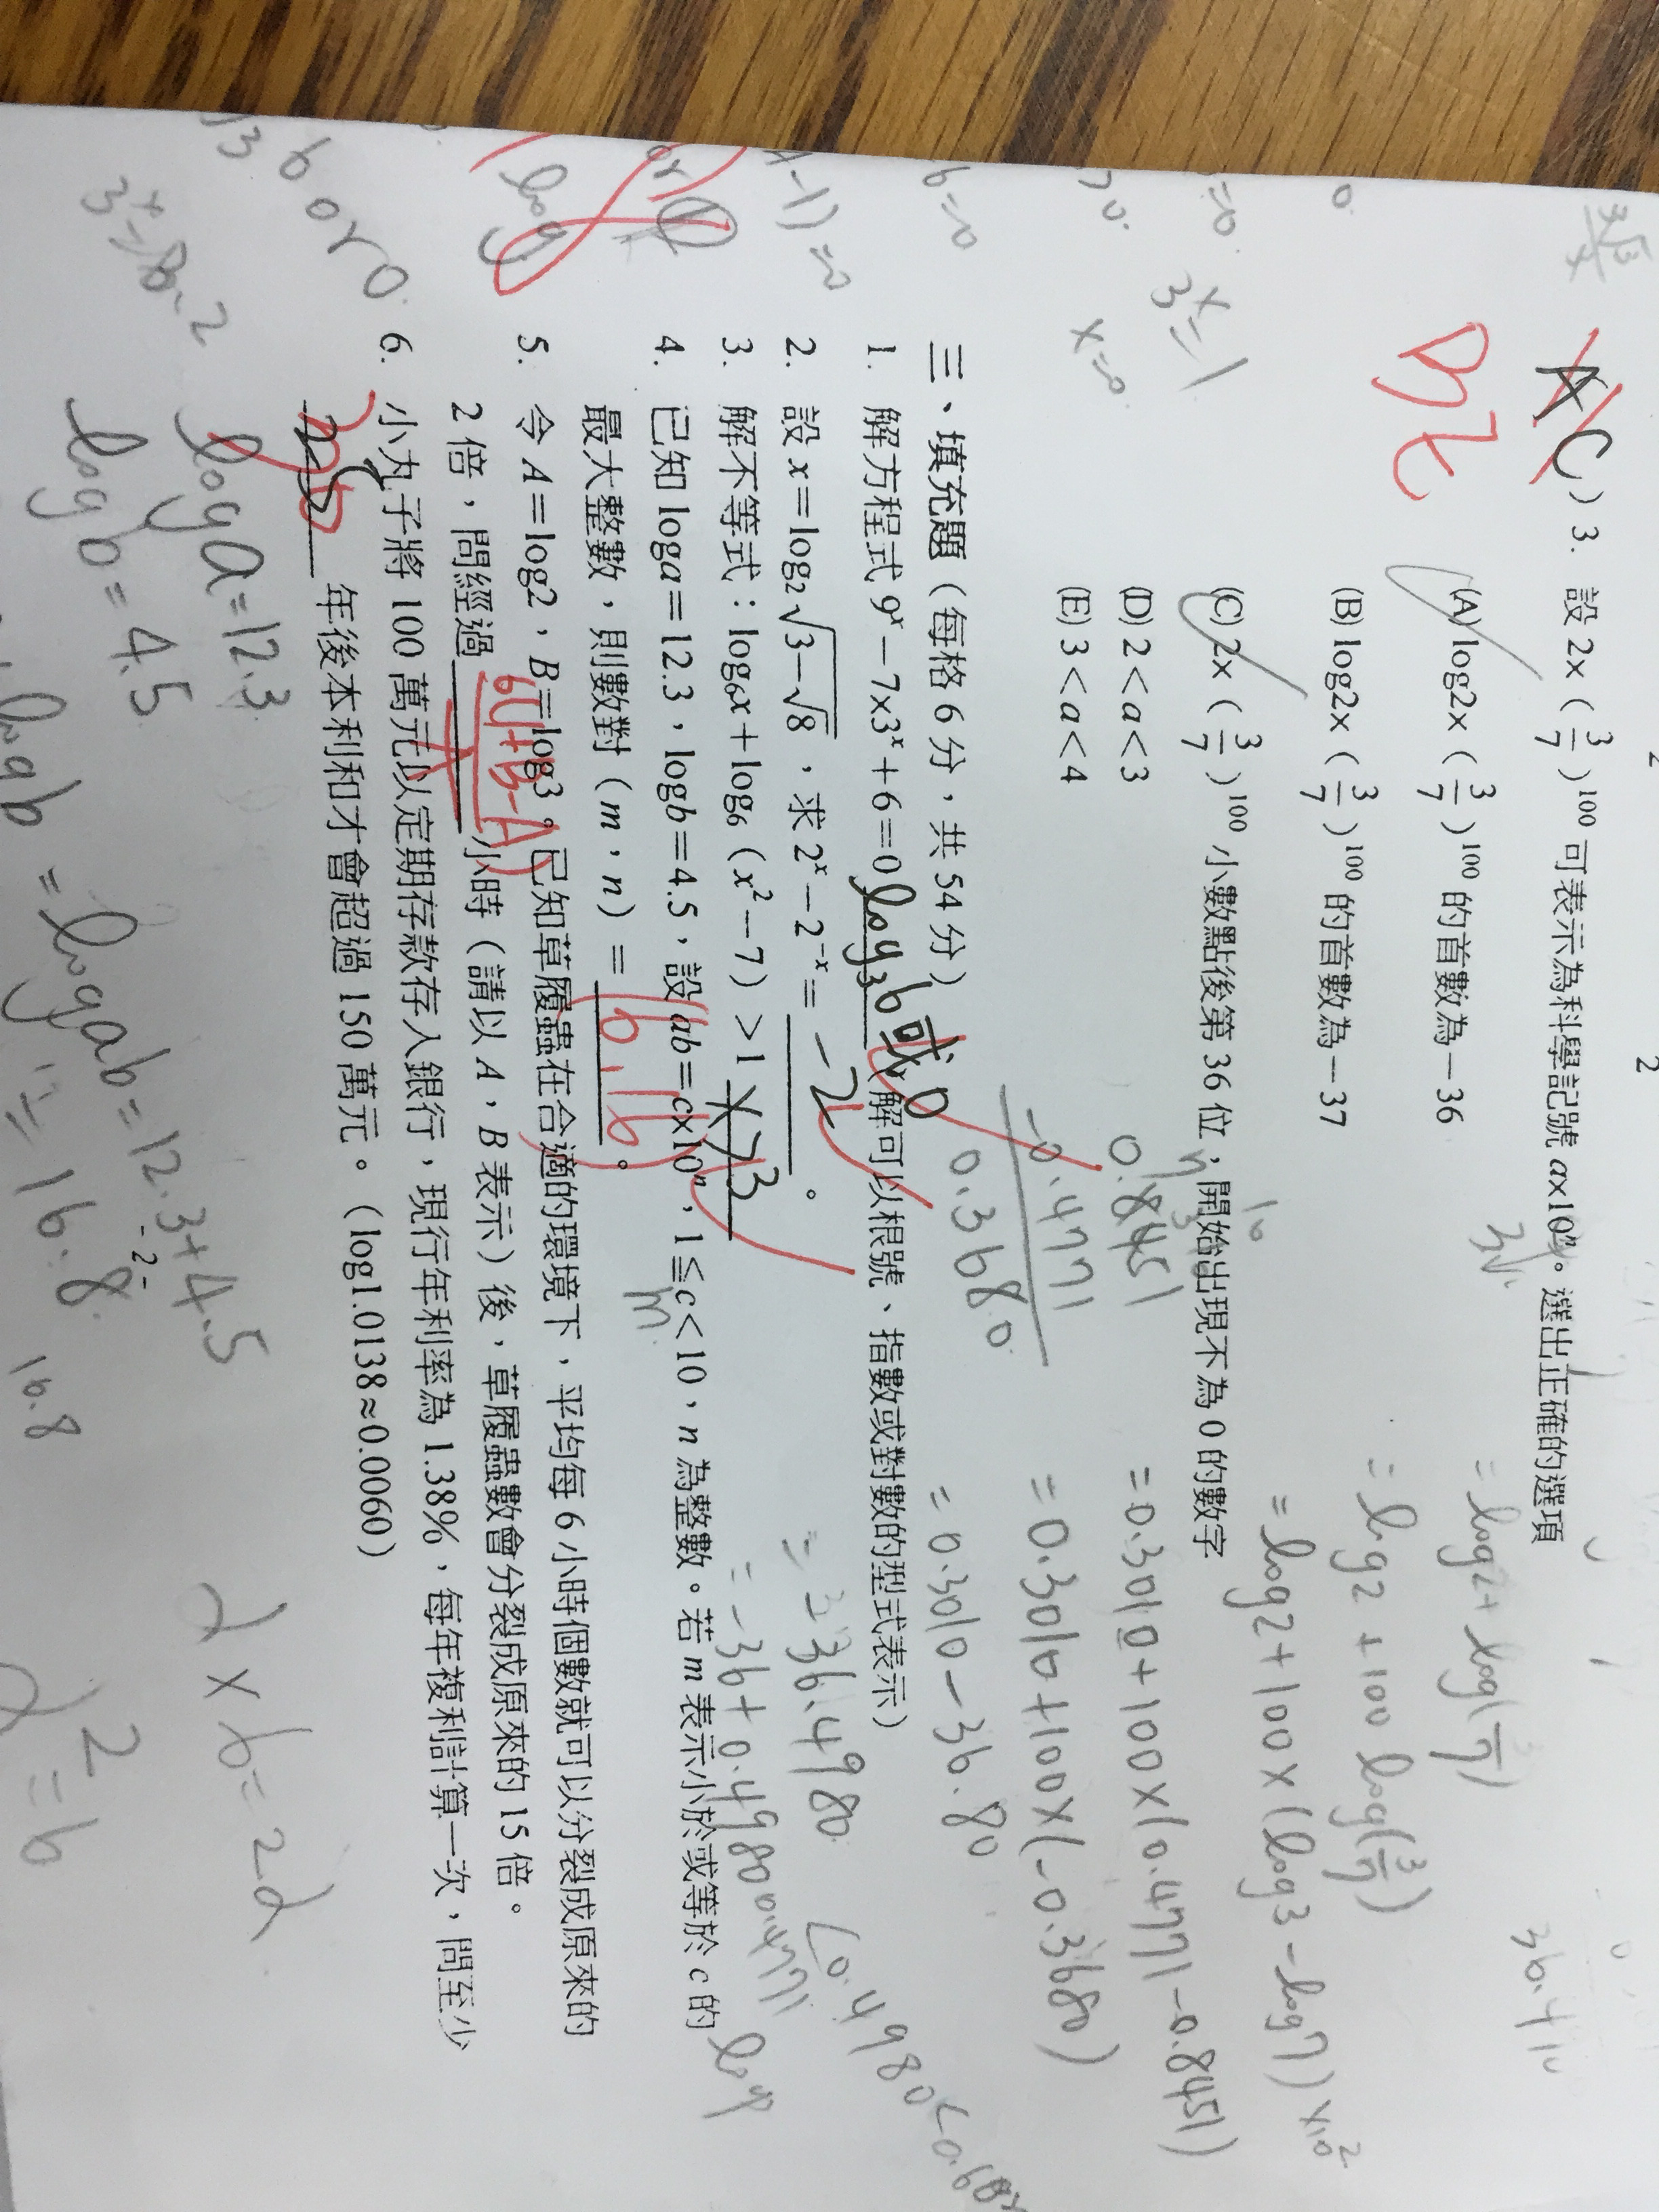 AC ) 3. 設 2×（3/7）¹⁰⁰ 可表示為科學記號 a×10ⁿ。選出正確的選項
BE
(A) log2×（3/7）¹⁰⁰ 的首數為－36
(B) log2×（3/7）¹⁰⁰ 的首數為－37
(C) 2×（3/7）¹⁰⁰ 小數點後第 36 位，開始出現不為 0 的數字
(D) 2＜a＜3
(E) 3＜a＜4
= log2 + log(3/7)
= log2 + 100 log(3/7)
= log2 + 100 × (log3 - log7)
= 0.3010 + 100 × (0.4771 - 0.8451)
= 0.3010 + 100 × (-0.3680)
= 0.3010 - 36.80
= -36.4980
= -36 + 0.4980
0.8451
-0.4771
0.3680
3ˣ = 1
x = 0
三、填充題（每格 6 分，共 54 分）
1. 解方程式 9ˣ－7×3ˣ＋6＝0 log₃6或0（解可以根號、指數或對數的型式表示）
2. 設 x＝log₂√(3－√8)，求 2ˣ－2⁻ˣ＝ -2 。
3. 解不等式：log₆x＋log₆（x²－7）＞1 x>3
4. 已知 loga＝12.3，logb＝4.5，設 ab＝c×10ⁿ，1≦c＜10，n 為整數。若 m 表示小於或等於 c 的
最大整數，則數對（m，n）＝ (6,16) 。
5. 令 A＝log2，B＝log3。已知草履蟲在合適的環境下，平均每 6 小時個數就可以分裂成原來的
2 倍，問經過 6(1+B-A)/A 小時（請以 A，B 表示）後，草履蟲數會分裂成原來的 15 倍。
6. 小丸子將 100 萬元以定期存款存入銀行，現行年利率為 1.38%，每年複利計算一次，問至少
年後本利和才會超過 150 萬元。（log1.0138≈0.0060）
6 or 0
3ˣ = 8.2
log a = 12.3
log b = 4.5
log ab = log ab = 12.3 + 4.5
= 16.8
16.8